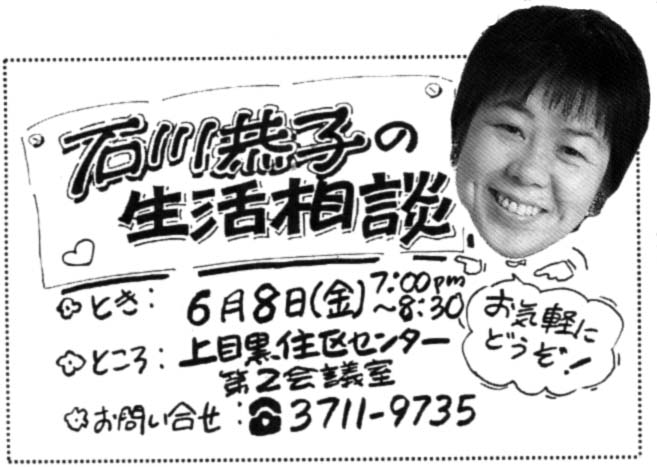 石川恭子の
生活相談
とき：6月8日(金)7:00pm
～8:30
ところ：上目黒住区センター
第2会議室
お問い合せ：☎3711-9735
お気軽に
どうぞ！